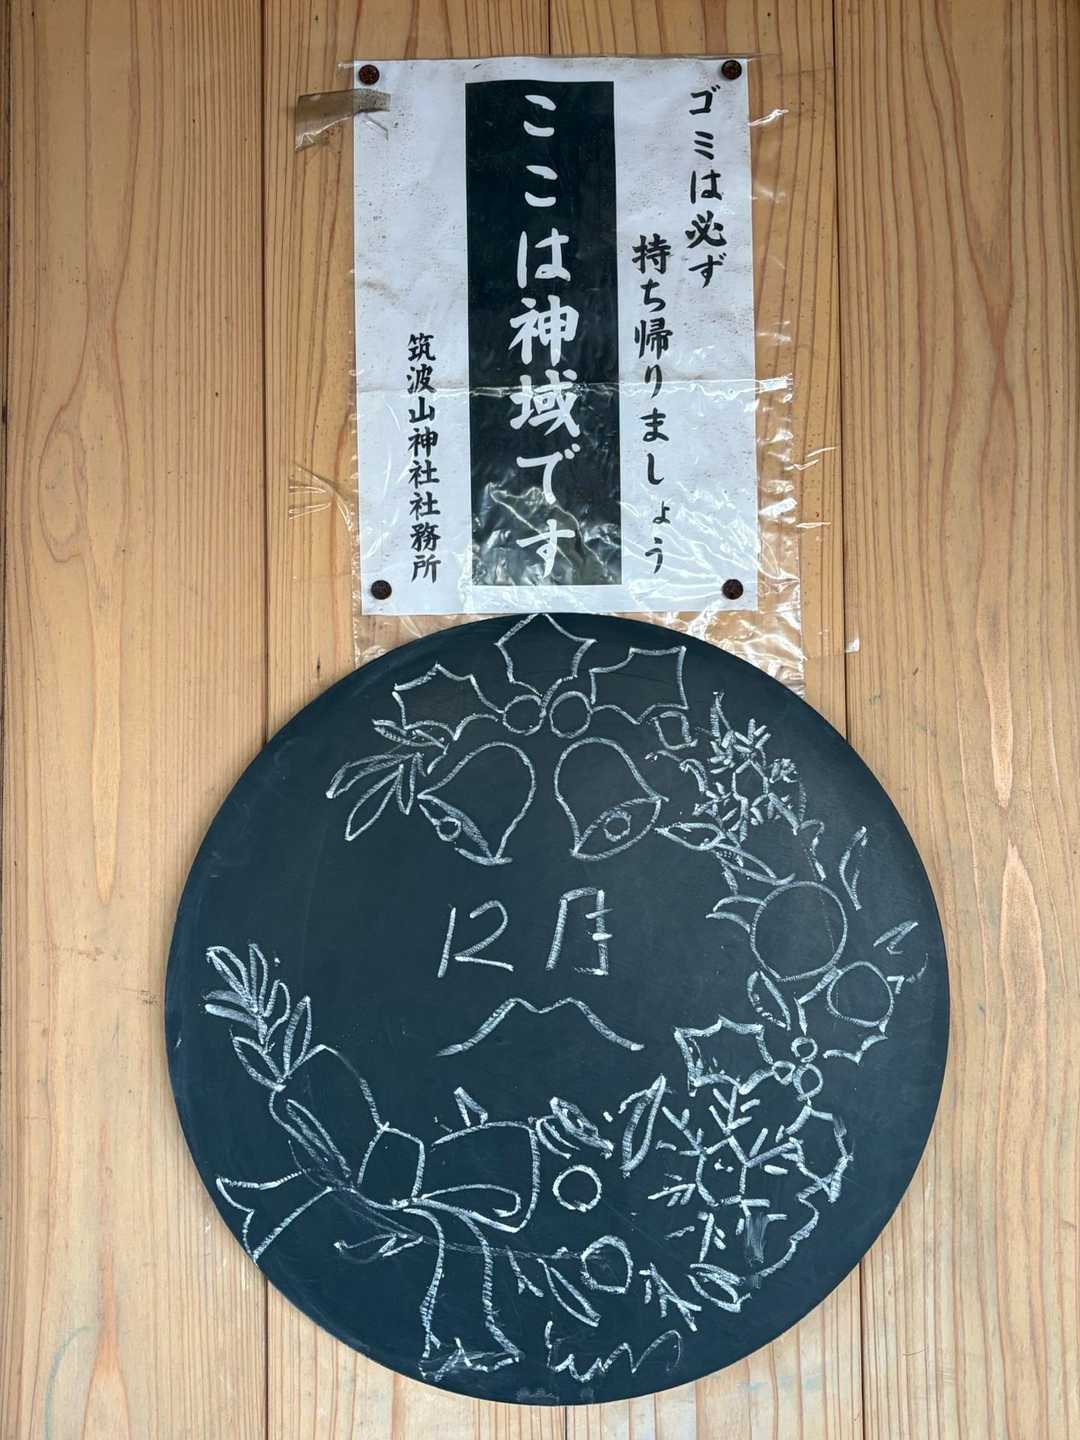 ゴミは必ず
持ち帰りましょう
ここは神域です
筑波山神社社務所
12月